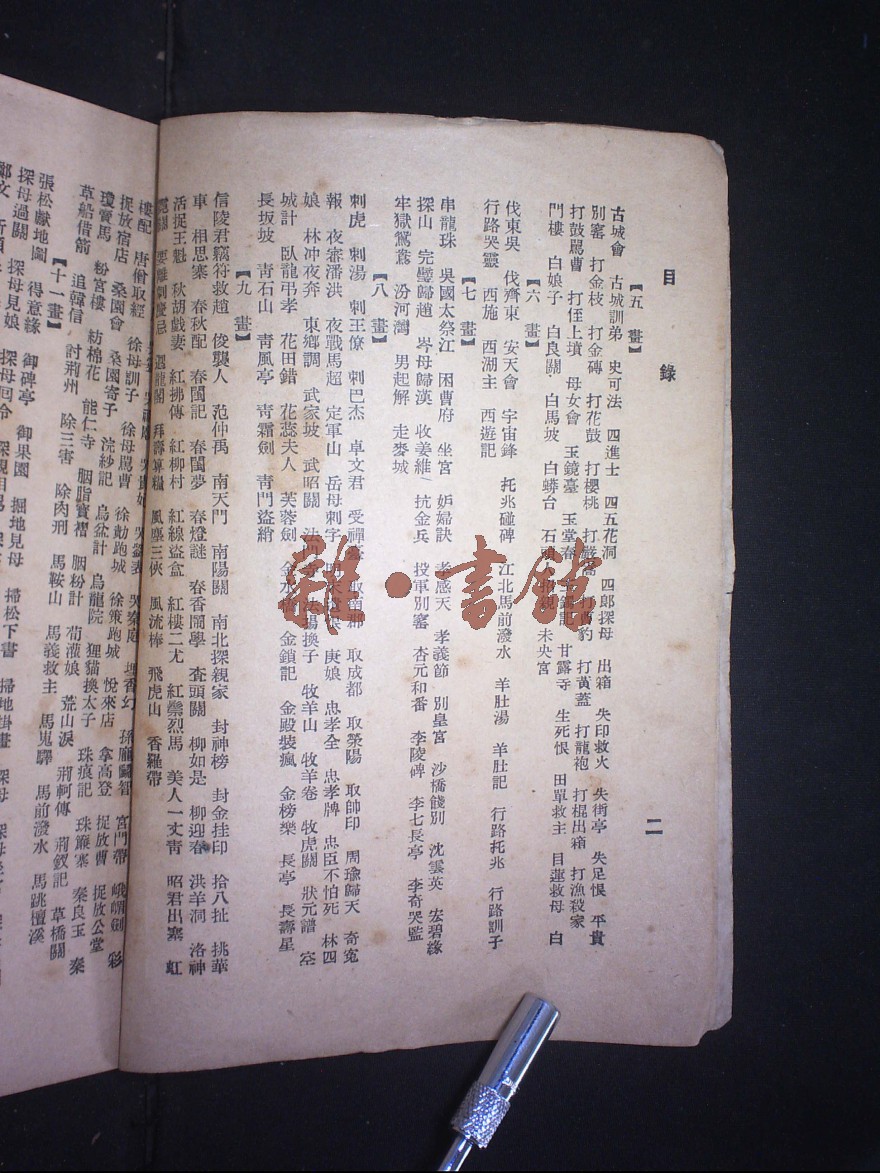 目錄
二
【五畫】
古城會 古城訓弟 史可法 四進士 四五花洞 四郎探母 出箱 失印救火 失街亭 失足恨 平貴
別窰 打金枝 打金磚 打花鼓 打櫻桃 打嚴嵩 打 打黃蓋 打龍袍 打棍出箱 打漁殺家
打鼓罵曹 打侄上墳 母女會 玉鏡臺 玉堂春 甘露寺 生死恨 田單救主 目蓮救母 白
門樓 白娘子 白良關 白馬坡 白蟒台 石頭人招親 未央宮
【六畫】
伐東吳 伐齊東 安天會 宇宙鋒 托兆碰碑 江北馬前潑水 羊肚湯 羊肚記 行路托兆 行路訓子
行路哭靈 西施 西湖主 西遊記
【七畫】
串龍珠 吳國太祭江 困曹府 坐宮 妒婦訣 孝感天 孝義節 別皇宮 沙橋餞別 沈雲英 宏碧緣
探山 完璧歸趙 岑母歸漢 收姜維 抗金兵 投軍別窰 杏元和番 李陵碑 李七長亭 李奇哭監
牢獄鴛鴦 汾河灣 男起解 走麥城
【八畫】
刺虎 刺湯 刺王僚 刺巴杰 卓文君 受禪臺 取南郡 取成都 取滎陽 取帥印 周瑜歸天 奇冤
報 夜審潘洪 夜戰馬超 定軍山 岳母刺字 明末遺恨 庚娘 忠孝全 忠孝牌 忠臣不怕死 林四
娘 林冲夜奔 東鄉調 武家坡 武昭關 法門寺 法場換子 牧羊山 牧羊卷 牧虎關 狀元譜 空
城計 臥龍弔孝 花田錯 花蕊夫人 芙蓉劍 金水橋 金鎖記 金殿裝瘋 金榜樂 長亭 長壽星
長坂坡 青石山 青風亭 青霜劍 青門盜綃
【九畫】
信陵君竊符救趙 俊襲人 范仲禹 南天門 南陽關 南北探親家 封神榜 封金挂印 拾八扯 挑華
車 相思寨 春秋配 春閨記 春閨夢 春燈謎 春香鬧學 査頭關 柳如是 柳迎春 洪羊洞 洛神
活捉王魁 秋胡戲妻 紅拂傳 紅柳村 紅線盜盒 紅樓二尤 紅鬃烈馬 美人一丈青 昭君出塞 虹
霓關 要離刺慶忌 遇龍閣 拜壽算糧 風塵三俠 風流棒 飛虎山 香羅帶
哭秦庭 埋香幻 孫龐鬬智 宮門帶 峨嵋劍 彩
樓配 唐僧取經 徐母訓子 徐母罵曹 徐勣跑城 徐策跑城 悅來店 拿高登 捉放曹 捉放公堂
捉放宿店 桑園會 桑園寄子 浣紗記 烏盆計 烏龍院 狸貓換太子 珠痕記 珠簾寨 秦良玉 秦
瓊賣馬 粉宮樓 紡棉花 能仁寺 胭脂寶褶 胭粉計 荀灌娘 荒山淚 荊軻傳 荊釵記 草橋關
草船借箭 追韓信 討荊州 除三害 除肉刑 馬鞍山 馬義救主 馬嵬驛 馬前潑水 馬跳檀溪
【十一畫】
張松獻地圖 得意緣 御碑亭 御果園 掘地見母 掃松下書 掃地掛畫 探母
探母過關 探母見娘 探母回令 探親相罵
鄭文
雜·書館